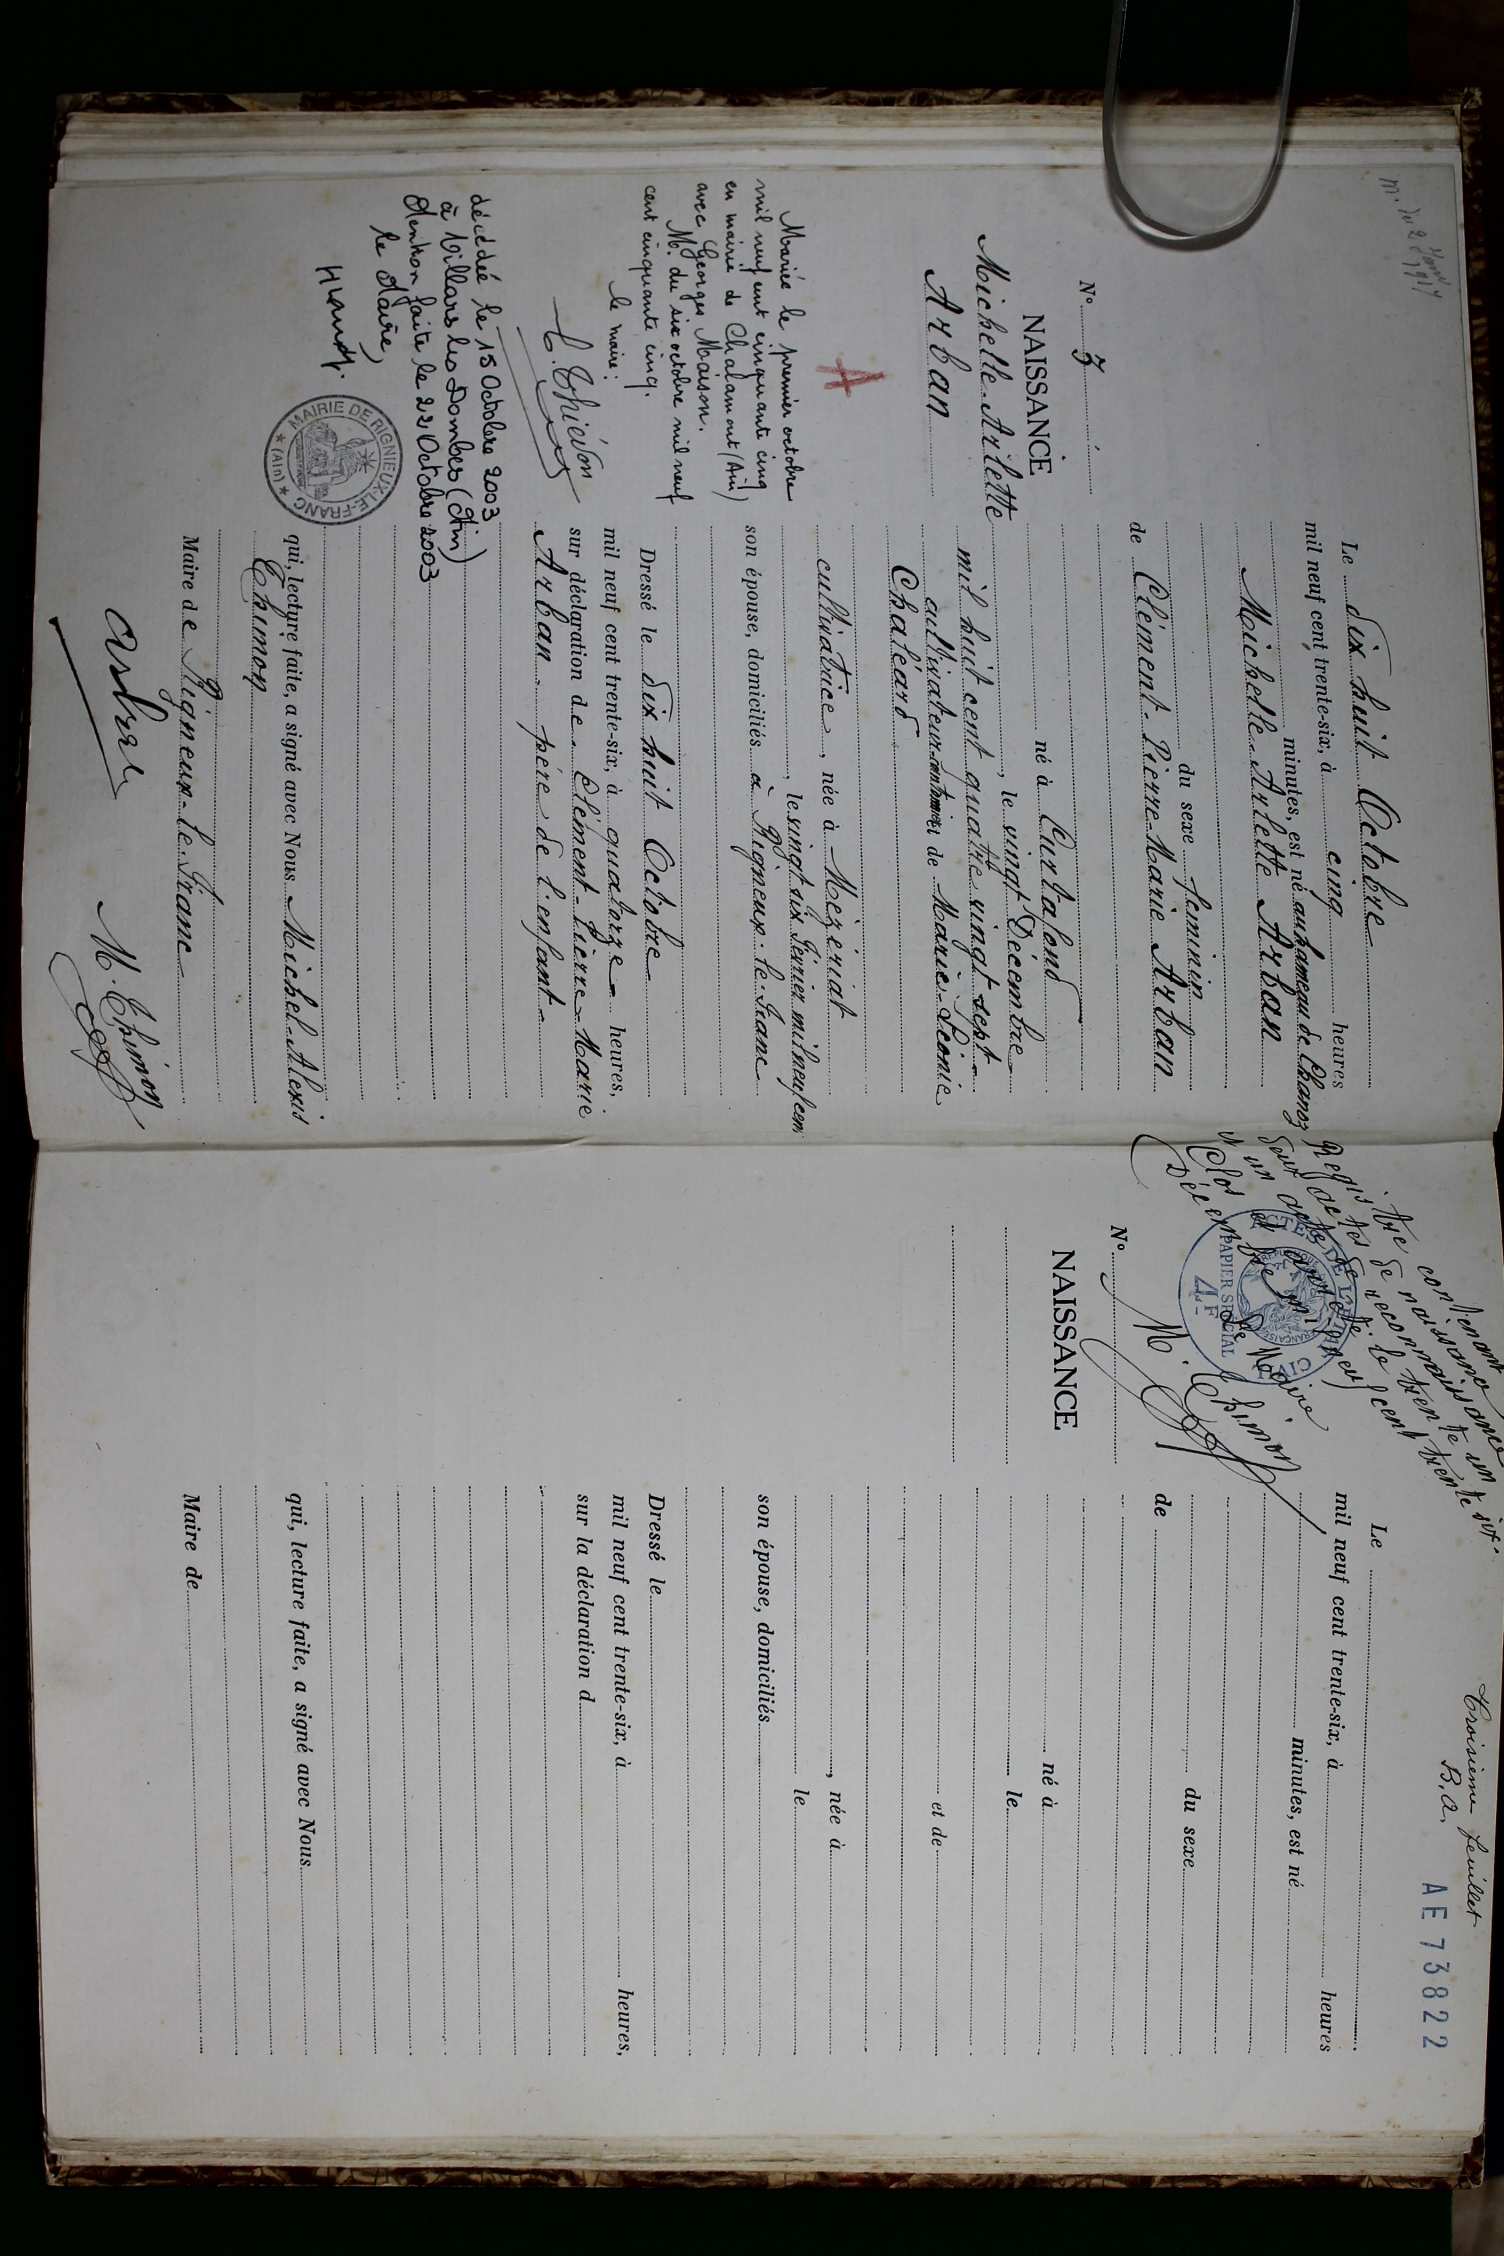 N° 3
NAISSANCE
Michelle Arlette
Arban
A
Mariée le premier octobre
mil neuf cent cinquante cinq
en mairie de Chalamont (Ain)
avec Georges Maison.
M. du six octobre mil neuf
cent cinquante cinq.
le maire:
décédée le 15 Octobre 2003
à Villars les Dombes (Ain)
Mention faite le 22 Octobre 2003
le Maire,
MAIRIE DE RIGNIEUX-LE-FRANC
★ (Ain) ★
Le dix huit Octobre
mil neuf cent trente-six, à cinq heures
minutes, est né au hameau de Chanoz
Michelle Arlette Arban
du sexe feminin
de Clément-Pierre-Marie Arban
né à Curtafond
, le vingt Décembre
mil huit cent quatre vingt sept
cultivateur et de Marie-Léonie
Chaléard
cultivatrice, née à Mézériat
, le vingt six Février mil neuf cent
son épouse, domiciliés à Rigneux-le-Franc
Dressé le dix huit Octobre
mil neuf cent trente-six, à quatorze heures,
sur déclaration de Clément-Pierre-Marie
Arban père de l'enfant
qui, lecture faite, a signé avec Nous Michel-Alexis
Thimon
Maire de Rigneux-le-Franc
Arban
M. Thimon
Registre contenant
de naissance
deux actes de reconnaissance
un acte
Clos et arrêté le trente un
Décembre mil neuf cent trente six.
Le Maire
M. Thimon
PAPIER SPECIAL
4F
Troisième feuillet
B.A.
AE 73822
N°
NAISSANCE
Le
mil neuf cent trente-six, à heures
minutes, est né
du sexe
de
né à
le
et de
, née à
le
son épouse, domiciliés
Dressé le
mil neuf cent trente-six, à heures,
sur la déclaration d
qui, lecture faite, a signé avec Nous
Maire de